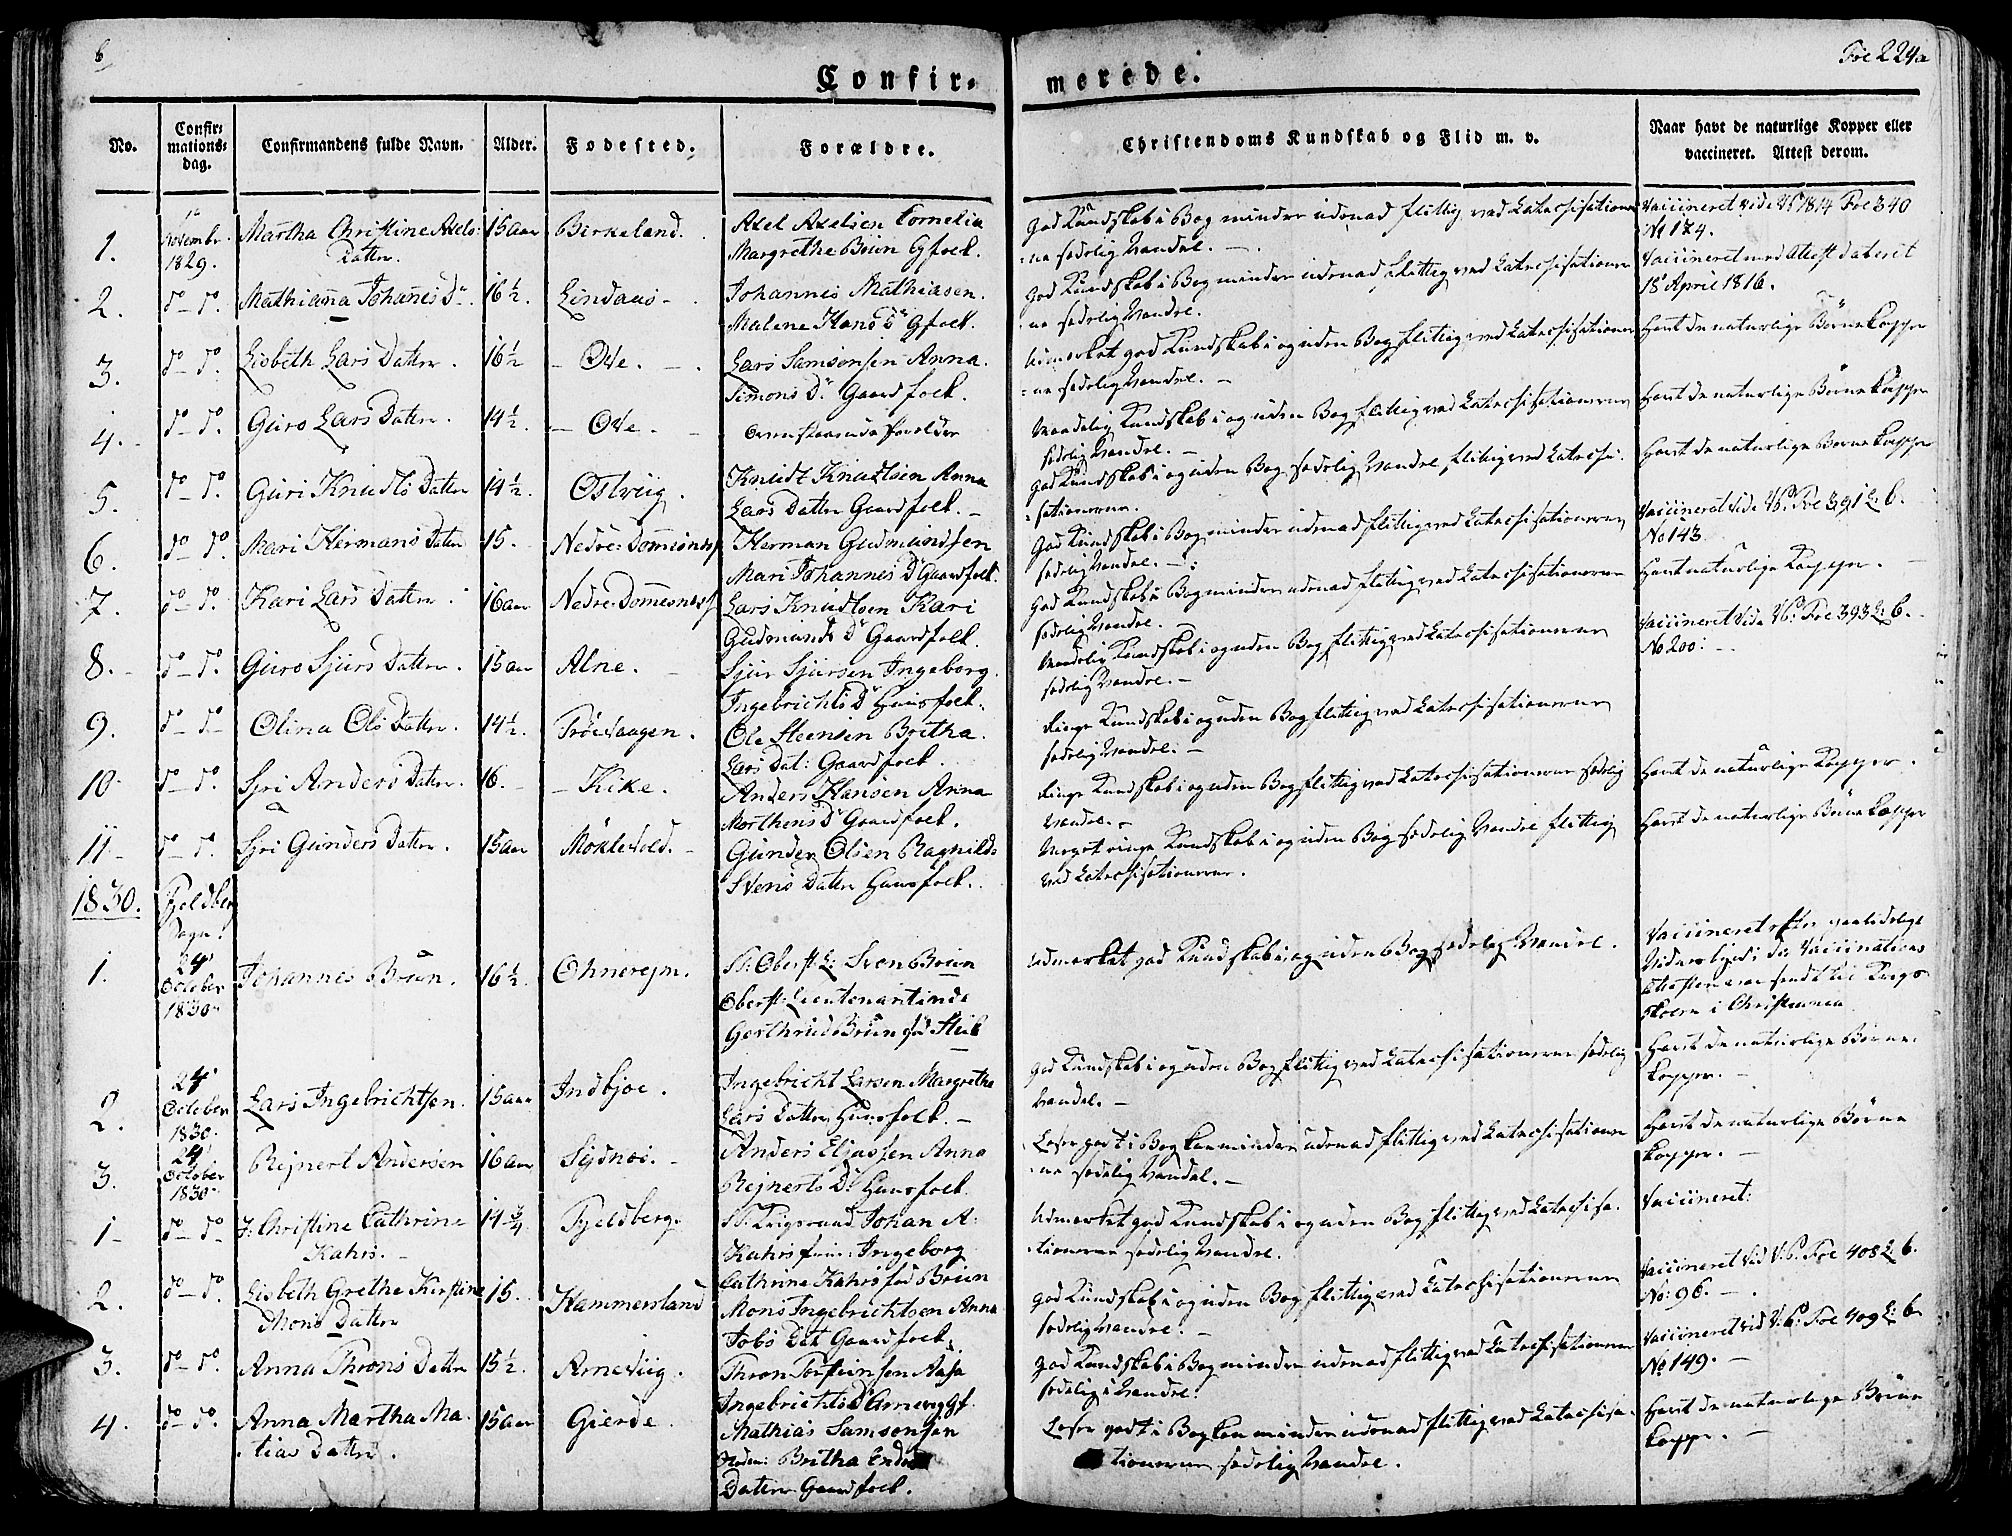 6
Foe 224a
Confir=
merede.
No.
Confir=
mations=
dag.
Confirmandens fulde Navn.
Alder.
Fødested.
Forældre.
Christendoms Kundskab og Flid m. v.
Naar havt de naturlige Kopper eller
vaccineret. Attest derom.
1.
1te
Novembr.
1829.
Martha Christine Axels
Datter.
15 aar
Birkeland.
Axel Axelsen Cornelia
Margrethe Brun Gfolk.
God Kundskab i Bog mindre udenad flittig ved Catechisationer
=ne sædelig Vandel.
Vaccineret vide N 1814 Foe 340
No 174.
2.
do - do.
Mathianna Johanes Dr.
16½.
Lindaas
Johannes Mathiasen.
Malene Hans Dr Gfolk.
God Kundskab i Bog mindre udenad flittig ved Catechisationer
ne sædelig Vandel.
Vaccineret med Attest dateret
18 April 1816.
3.
do - do.
Lisbeth Lars Datter.
16½
Ove.
Lars Samsonsen Anna.
Simons Dr. Gaardfolk.
Udmerket god Kundskab i og uden Bog flittig ved Catechisationer
=ne sædelig Vandel.
Havt de naturlige Børnekopper
4.
do - do.
Guro Lars Datter.
14½.
Ove.
Ovenstaaende forælder
Maadelig Kundskab i og uden Bog flittig ved Catechisationerne
sædelig Vandel.
Havt de naturlige Børne Kopper
5.
do - do.
Guri Knudts Datter
14½.
Ostviig.
Knudt Knudtsen Anna
Lars Datter Gaardfolk.
God Kundskab i og uden Bog sædelig Vandel flittig ved Catechi=
sationerne.
Havt de naturlige Børne Kopper
6.
do - do.
Mari Hermans Datter
15.
Nedre: Domesnes
Herman Gudmundsen
Mari Johannes Dr Gaardfolk.
God Kundskab i Bog mindre udenad flittig ved Catechisationerne
sædelig Vandel.
Vaccineret vide N 6. Foe 391 L 6.
No 143.
7.
do - do.
Kari Lars Datter
16 aar
Nedre: Domesnes
Lars Knudtsen Kari
Gudmunds Dr Gaardfolk.
God Kundskab i Bog mindre udenad flittig ved Catechisationerne
sædelig Vandel.
Havt naturlige Kopper.
8.
do - do.
Guro Sjurs Datter.
15 aar
Alne.
Sjur Sjursen Ingeborg.
Ingebrichts Dr Huusfolk.
Maadelig Kundskab i og uden Bog flittig ved Catechisationerne
sædelig Vandel.
Vaccineret Vide N 6: Foe 393 L 6.
No 200.
9.
do - do
Olina Ols Datter.
14½.
Trøevaagen.
Ole Steensen Britha.
Lars Dat: Gaardfolk.
Ringe Kundskab i og uden Bog flittig ved Catechisationerne
sædelig Vandel.
10.
do - do.
Siri Anders Datter.
16.
Kike.
Anders Hansen Anna
Morthens Dr Gaardfolk.
Ringe Kundskab i og uden Bog flittig ved Catechisationerne sædelig
Vandel.
Havt de naturlige Kopper.
11.
do - do.
Siri Gunders Datter.
15 aar
Møklevold.
Gunder Olsen Ragnild
Stens Datter Huusfolk.
Meget ringe Kundskab i og uden Bog sædelig Vandel flittig
ved Catechisationerne.
Havt de naturlige Børne Kopper
1830.
Fjeldberg
Sogn:
1.
24
October
1830
Johannes Brun.
16½.
Ohnerejm.
Sr. Oberst: L: Sven Brun
Oberst: Lieutenantinde
Gerthrud Brun fød Heib
Udmerket god Kundskab i og uden Bog sædelig Vandel.
Vaccineret efter paalidelige
Vidnesbyrd i da Vaccinations
Attesten var sendt til Krigs
skolen i Christiania
2.
24
October
1830.
Lars Ingebrichtsen.
15 aar
Indbjoe.
Ingebricht Larsen Margretha
Lars Datter Huusfolk.
God Kundskab i og uden Bog flittig ved Catechisationerne sædelig
Vandel.
Havt de naturlige Børne
kopper.
3.
24
October
1830.
Rejnert Andersen
16 aar
Sydnæs.
Anders Eliassen Anna
Rejnerts Dr Huusfolk.
Læser godt i Bog kan mindre udenad flittig ved Catechisationer
ne sædelig Vandel.
Havt de naturlige Børne
kopper.
1
do - do
J: Christine Cathrine
Kahrs.
14¾.
Fjeldberg.
Sr: Krigsraad Johan A:
Kahrs frue: Ingeborg
Cathrine Kahrs fød Brun
Udmerket god Kundskab i og uden Bog flittig ved Catechisa=
tionerne sædelig Vandel.
Vaccineret.
2.
do - do.
Lisbeth Grethe Kirstine
Mons Datter
15.
Hammersland
Mons Ingebrichtsen Anna
Jobs Dat Gaardfolk.
God Kundskab i og uden Bog flittig ved Catechisationerne
sædelig Vandel.
Vaccineret vid N: 6. Foe 408 L 6.
No: 96.
3.
do - do.
Anna Throns Datter
15½.
Arneviig.
Thron Torsteinsen Aasa
Ingebrichts Dr Gf.
God Kundskab i Bog mindre udenad flittig ved Catechisationerne
sædelig Vandel.
Vaccineret vid N: 6: Foe 409 L: 6.
No 149.
4.
do - do.
Anna Martha Ma-
tias Datter.
15 aar
Gierde.
Mathias Samsonsen
Britha Endre
Datter Gaardfolk.
Læser godt i Bog kan mindre udenad flittig ved Catechisa=
tionerne sædelig Vandel.
Havt de naturlige Børne
kopper.